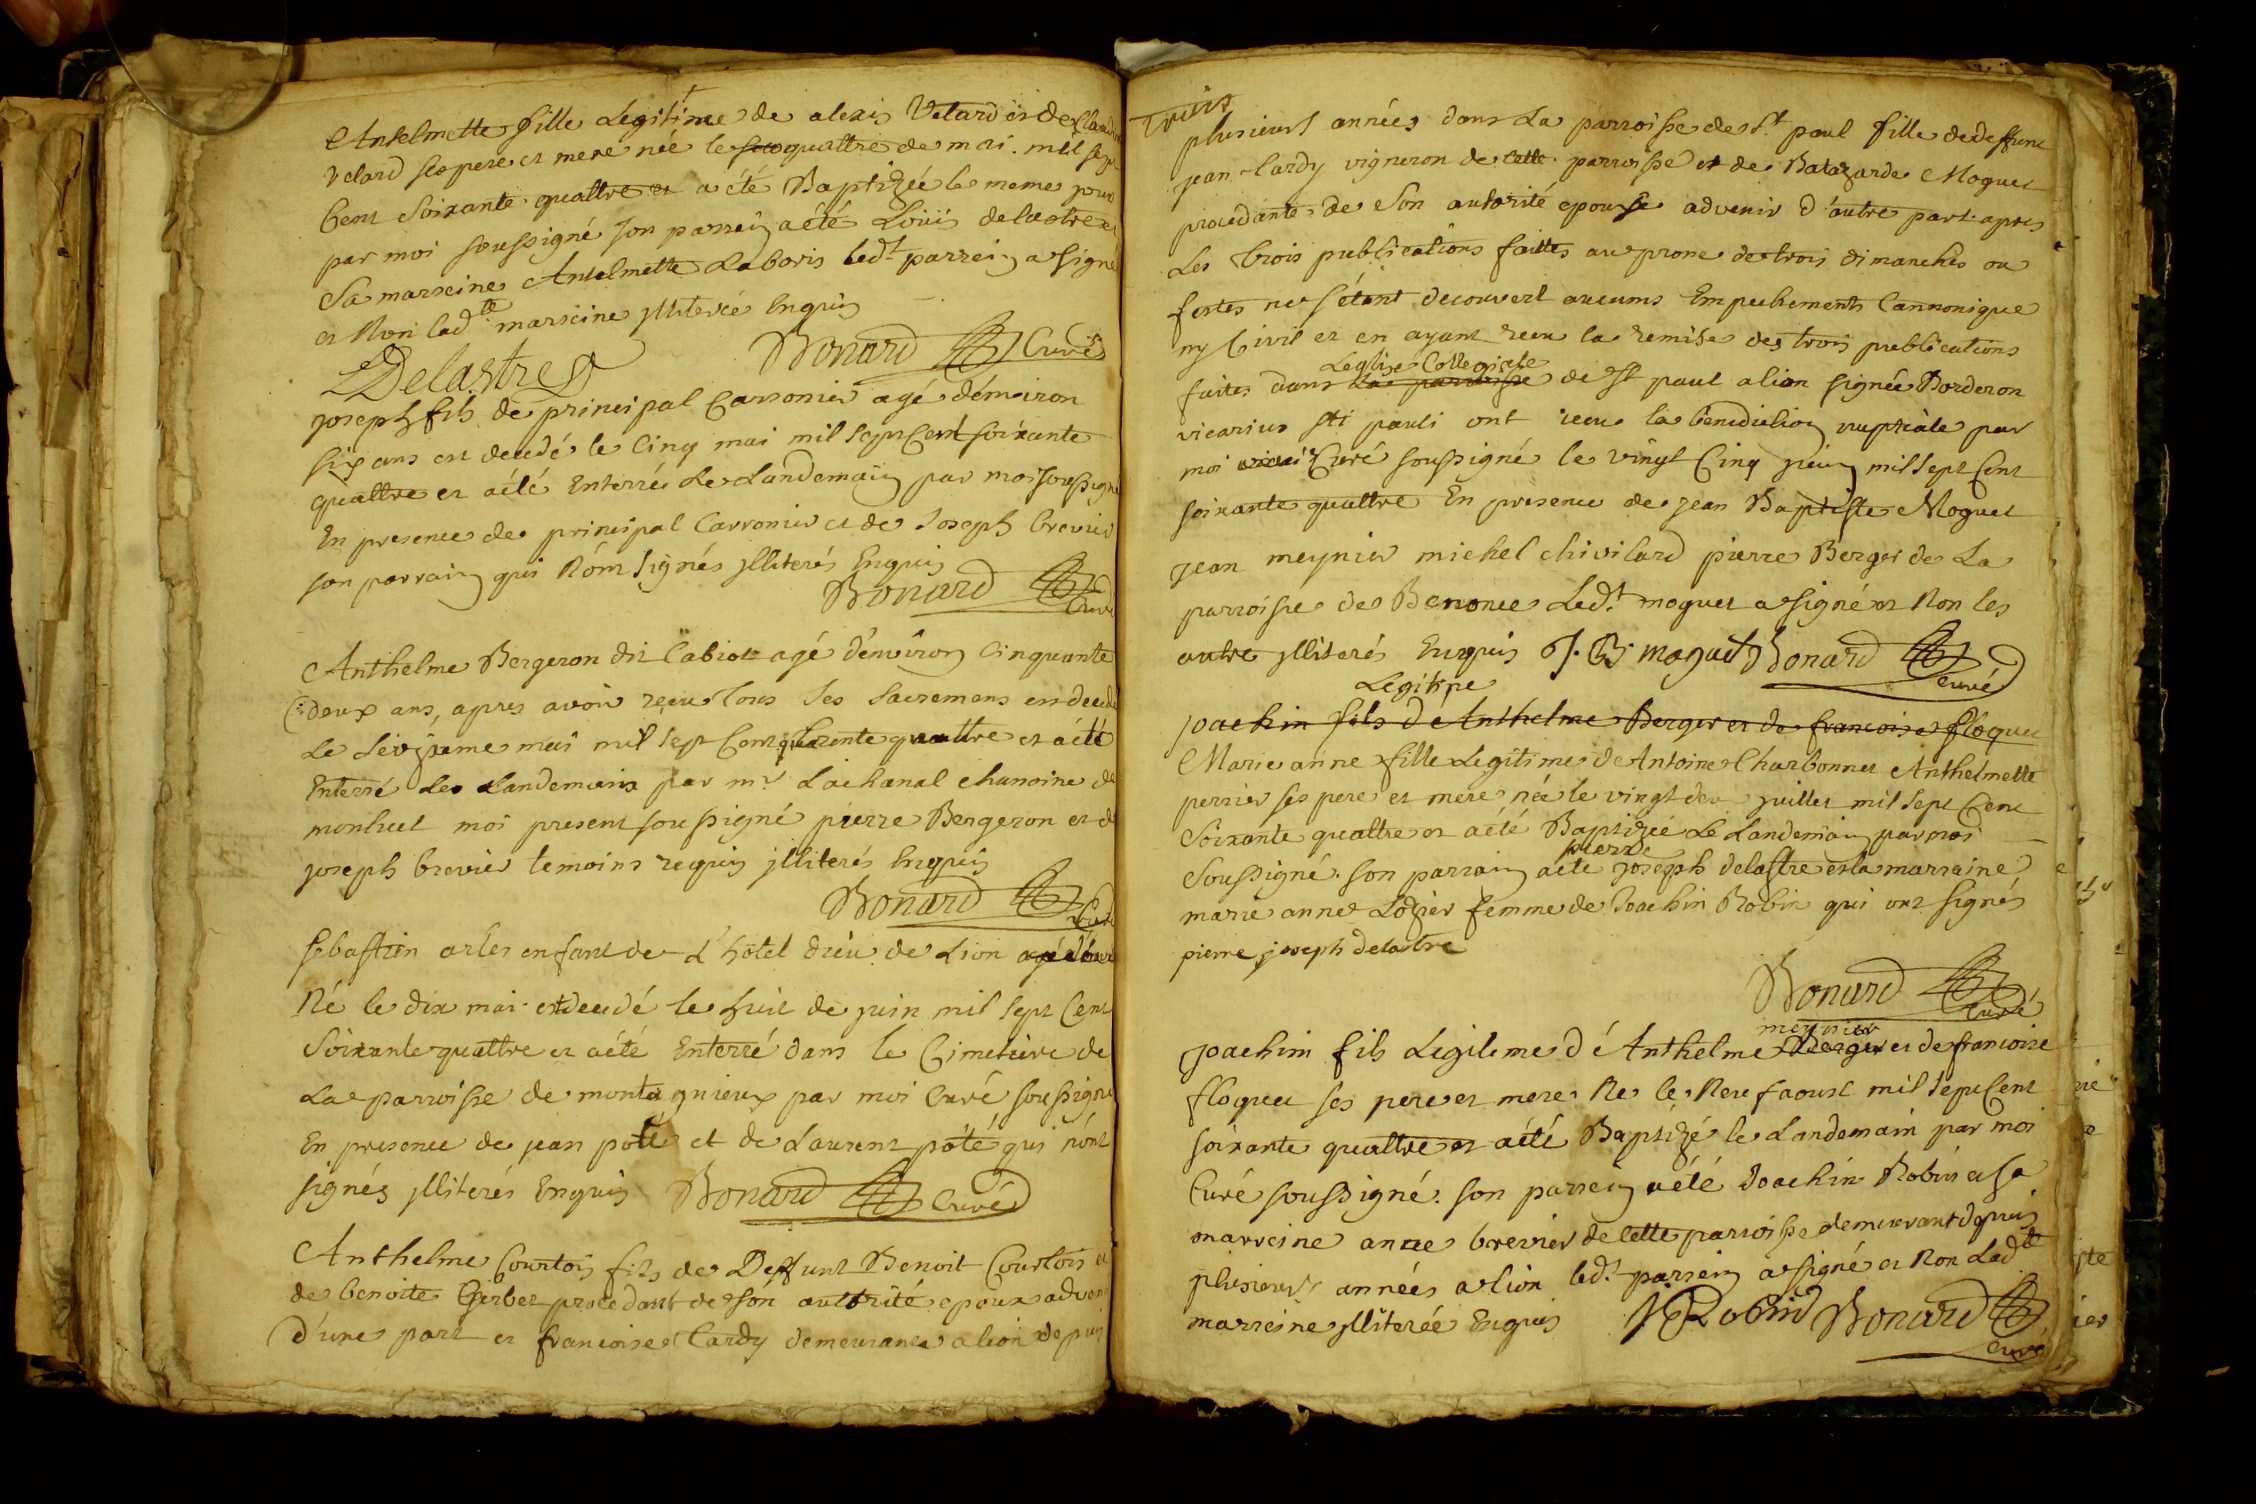 Anselmette fille Legitime de alexis Velard et de
Velard ses pere et mere née le quattre de mai mil sept
Cent Soixante quattre et a été Baptizée le meme jour
par moi soussigné son parrein a été Loüis delastre et
Sa marreine Anselmette Laboris led.t parrein a signé
et Non lad.te marreine jlliterée Enquis
Delastre Bonard Curé
joseph fils de principal Carronier agé d'émviron
six ans est decedé le Cinq mai mil sept Cent soixante
quattre et a été Enterré Le Landemain par moi soussigné
En presence de principal Carronier et de Joseph brevier
son parrain qui N'ont signés jlliterés Enquis
Bonard Curé
Anthelme Bergeron dit Cabiot agé d'énviron Cinquante
deux ans, apres avoir reçeu tous ses Sacremens est decedé
Le séizieme mai mil sept Cent quattre et a été
Enterré Le Landemain par m.r Laekanal chanoine de
montluel moi present soussigné pierre Bergeron et de
joseph brevier temoins requis jlliterés Enquis
Bonard Curé
sebastien arles enfant de L'hôtel dieu de Lion
Né le dix mai est decedé le huit de juin mil sept Cent
Soixante quattre et a été Enterré dans le Cimetiere de
La parroisse de montagnieux par moi Curé soussigné
En presence de jean poté et de Laurent poté qui n'ont
signés jlliterés Enquis Bonard Curé
Anthelme Courtois fils de Deffunt Benoit Courtois et
de benoite Gerbet procedant de són authrité epoux advenir
d'une part et francoise Cardy demeurante a lion depuis
plusieurs années dans La parroisse de s.t paul fille de deffunt
jean Cardy vigneron de cette parroisse et de Batazarde Moguet
procedante de Son autorité epouse advenir d'autre part apres
Les trois publications faittes au prone de trois dimanches ou
festes ne s'étant decouvert aucuns Empechements Cannonique
ny Civil et en ayant receu la remise des trois publications
Leglise Collegiale
faites dans la parroisse de st paul a lion signée Borderon
vicarius sti pauli ont receu la benediction nuptiale par
moi Curé soussigné le vingt Cinq juin mil sept Cent
soixante quattre En presence de jean Baptiste Moguet
jean meynier michel chivilard pierre Berger de La
parroisse de Benonce Led.t moguet a signé et Non les
autre jlliterés Enquis J. B. moguet Bonard curé
Legitime
joachin fils d'é Anthelme Berger et de francoise floquet
Marie anne fille Legitime de Antoine Charbonnet Anthelmette
perrier ses pere et mere née le vingt deu juillet mil sept Cent
Soixante quattre et a été Baptizée Le Landemain par moi
pierre
Soussigné. son parrain a été joseph delastre et la marraine
marie anne Lozier femme de Joachin Robin qui ont signés
pierre joseph delastre
Bonard Curé
meynier
joachim fils Legiteme d'é Anthelme Berger et de francoise
floquet ses pere et mere Ne le Neuf aoust mil sept Cent
soixante quattre et a été Baptizé le Landemain par moi
Curé soussigné. son parrein a été Joachin Robin et sa
marreine anne brevier de cette parroisse demeurant depuis
plusieurs années a lion led.t parrein a signé et Non Lad.te
marreine jlliterée Enquis J Robin Bonard
curé